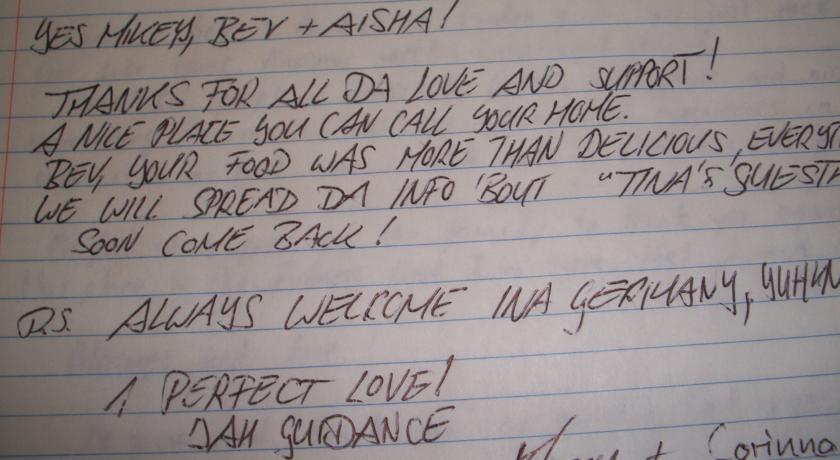 YES MIKEY, BEV + AISHA!
THANKS FOR ALL DA LOVE AND SUPPORT!
A NICE PLACE YOU CAN CALL YOUR HOME.
BEV, YOUR FOOD WAS MORE THAN DELICIOUS, EVERY
WE WILL SPREAD DA INFO 'BOUT "TINA'S GUEST
SOON COME BACK!
P.S. ALWAYS WELCOME INA GERMANY,
1 PERFECT LOVE!
JAH GUIDANCE
+ Corinna